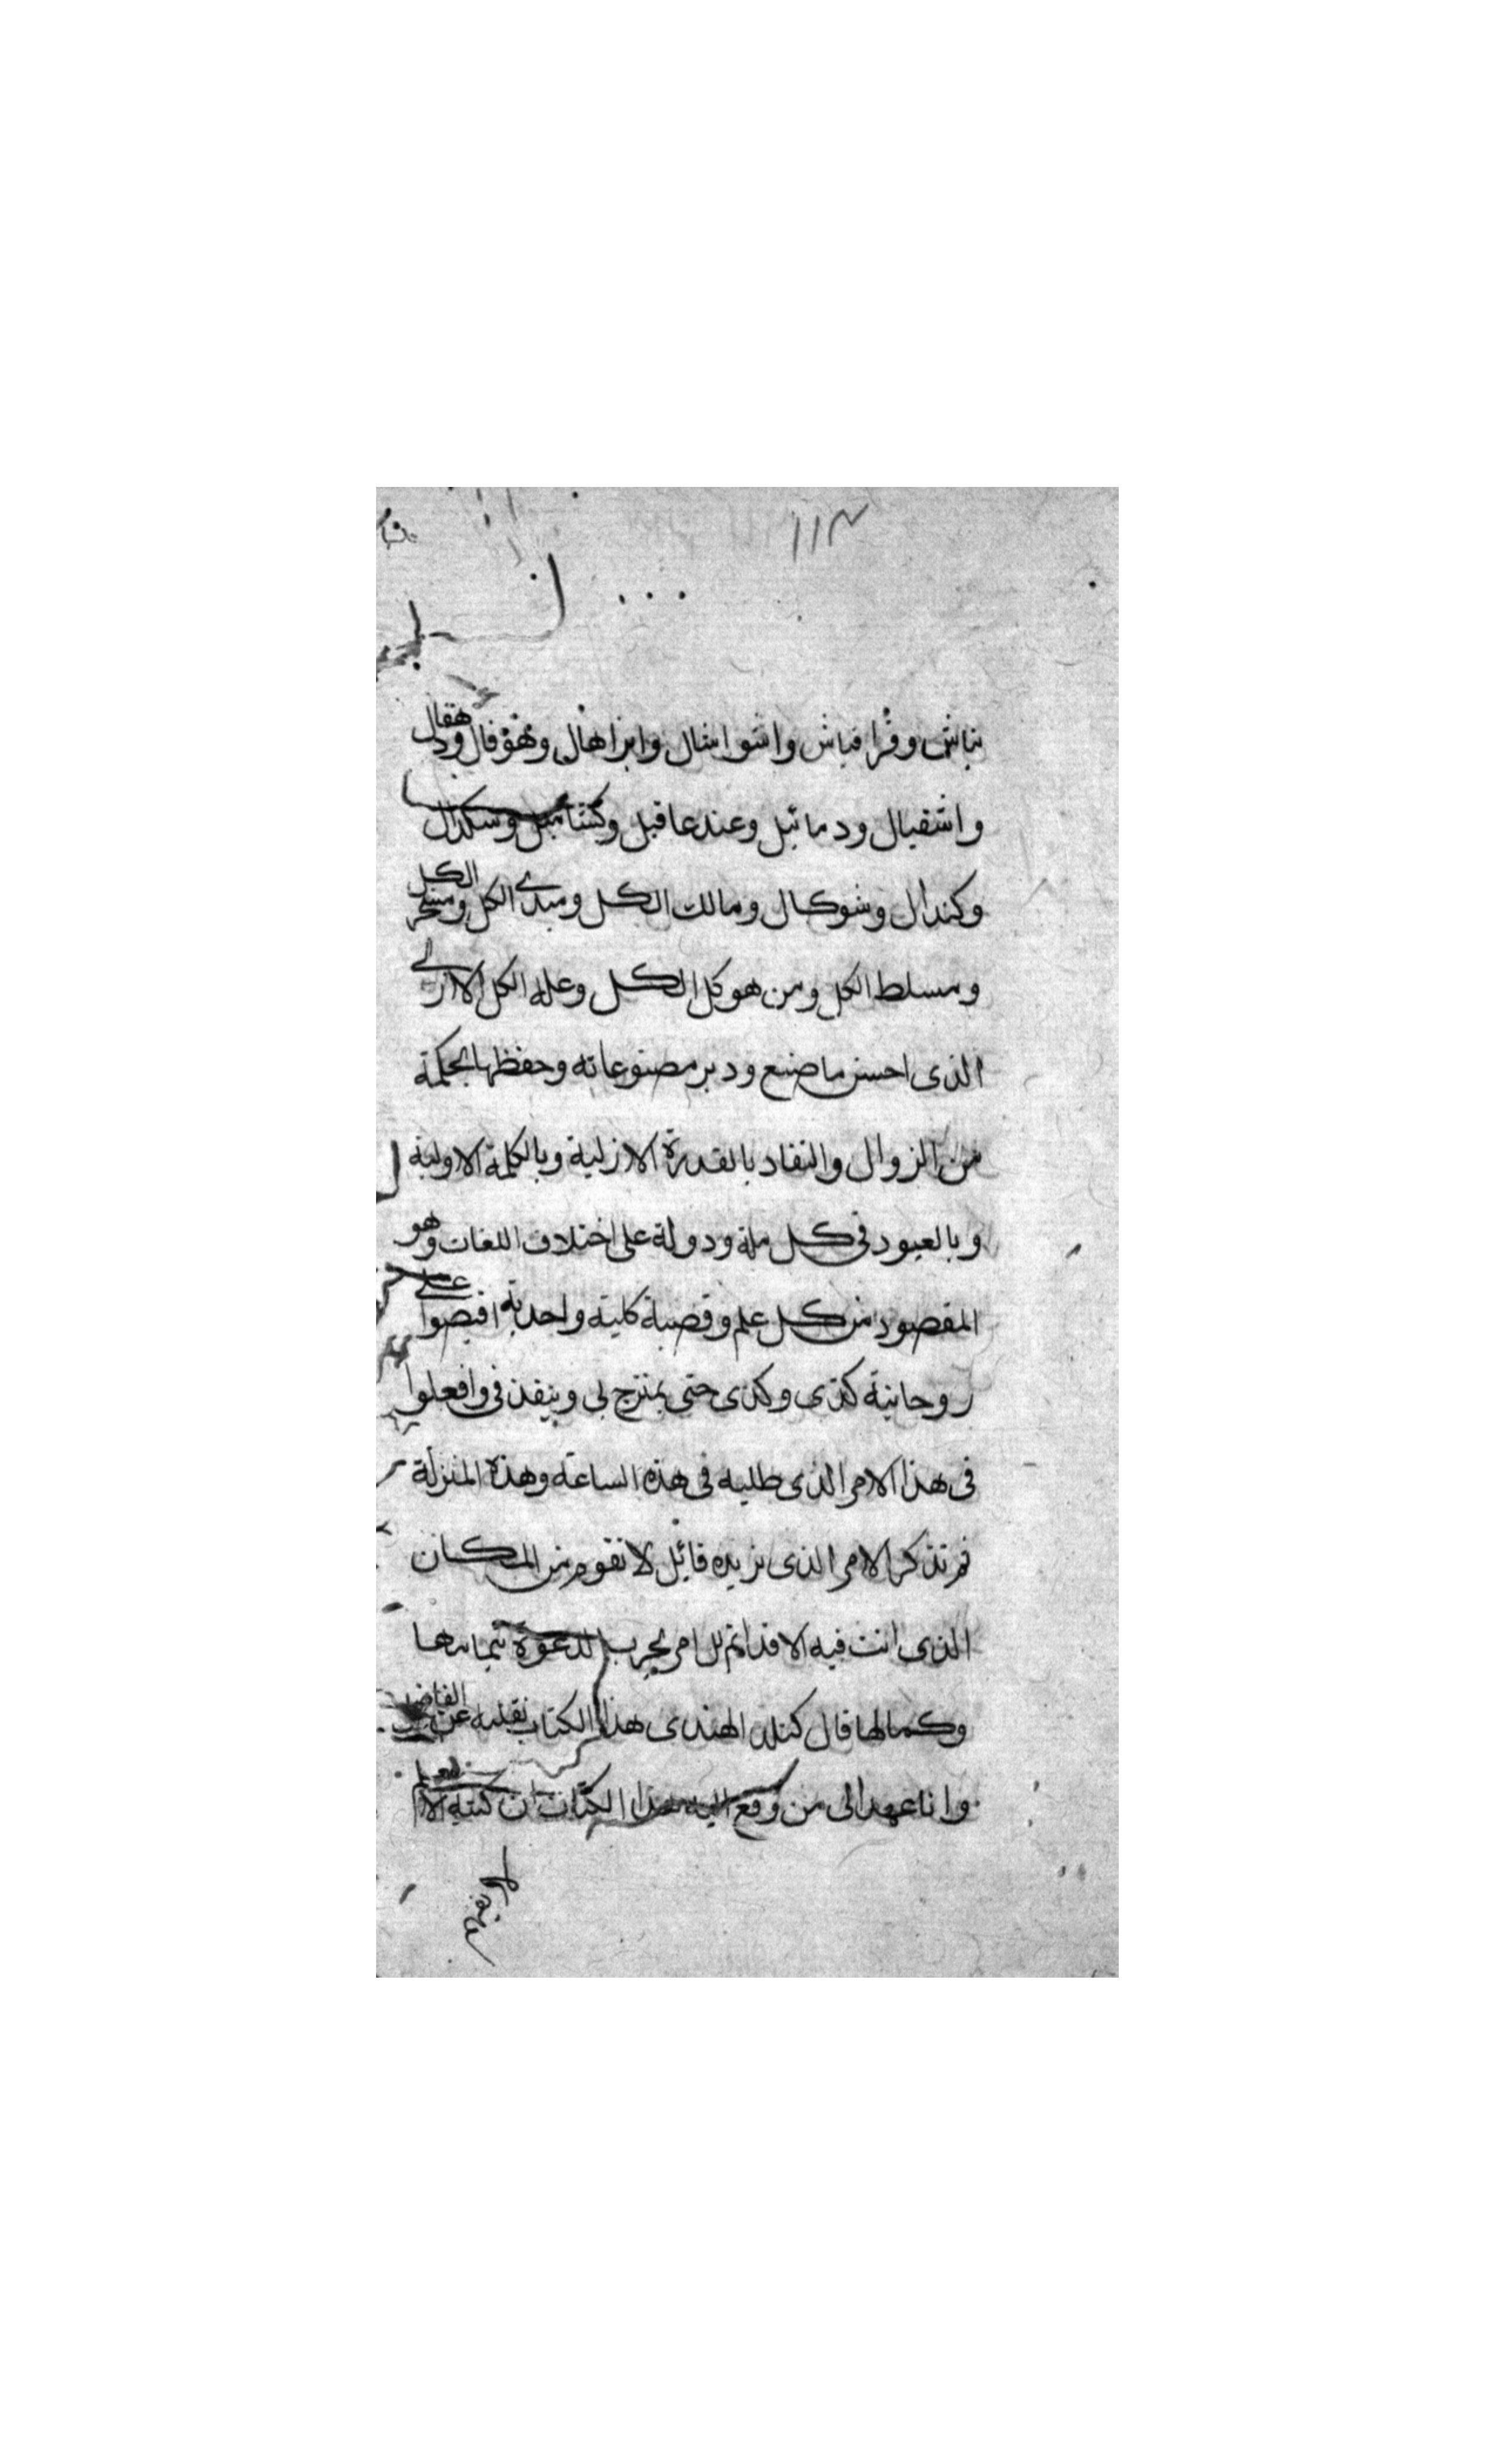 ١١٣
واشوا شال وابراهال
واشقيال ودمائيل وعندعاقيل
وكندال وشوكال ومالك الكل ومبدى الكل ومسخر الكل
ومسلط الكل ومن هو كل الكل وعلة الكل الازلى
الذى احسن ما صنع ودبر مصنوعاته وحفظها بحكمة
من الزوال والنفاد بالقدرة الازلية وبالكلمة الاولية
وبالعبود فى كل ملة ودولة على اختلاف اللغات وهو
المقصود من كل علم وقضية كلية واحدية افيضوا على
روحانية كذى وكذى حتى يمتزج بى وينفذ فى وافعلوا
فى هذا الامر الذى طلبه فى هذه الساعة وهذه المنزلة
ثم تذكر الامر الذى تريده فانك لا تقوم من المكان
الذى انت فيه الا قد اتم لك امر مجرب الدعوة بتمامها
وكمالها قال الهندى هذا الكتاب نقلته عن
وانا عهد الى من وقع اليه هذا الكتاب ان كتبه الا
لا يفهم